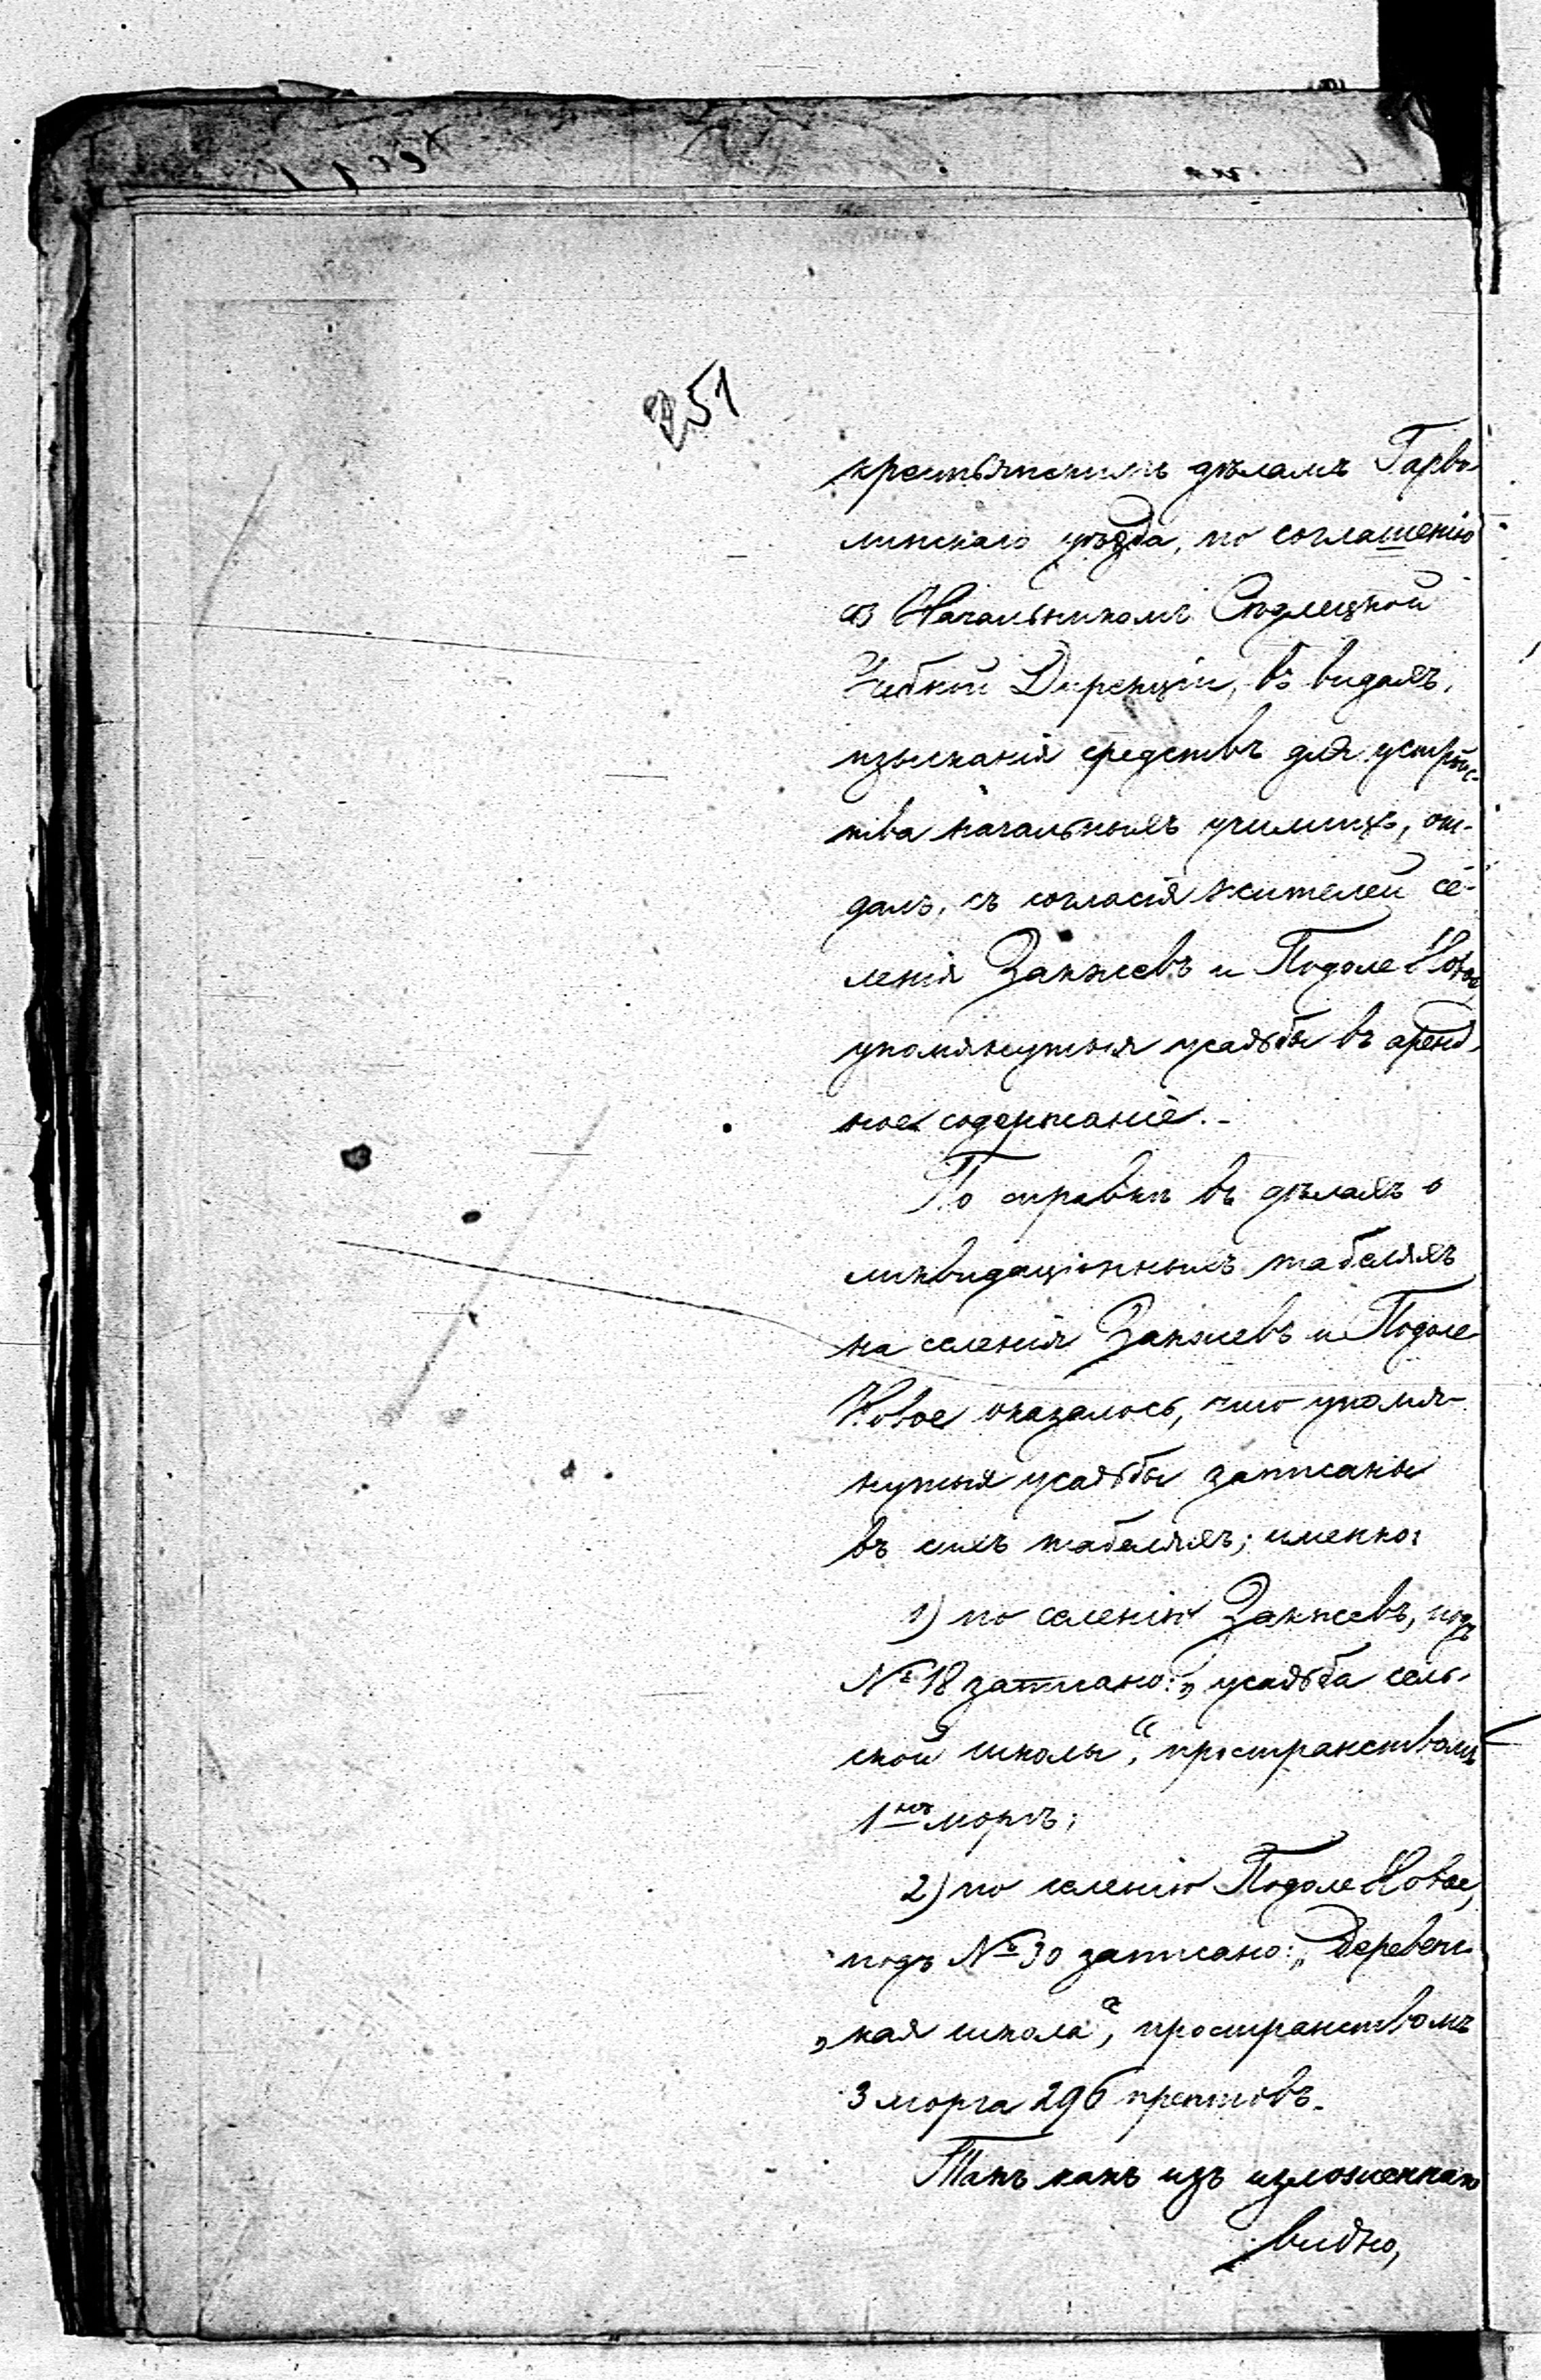 251
крестьянскимъ дѣламъ Гарво-
линскаго уѣзда, по соглашенію
съ Начальникомъ Сѣдлецкой
Учебной Дирекціи, въ видахъ,
изысканія средствъ для устройс-
тва начальныхъ училищъ, от-
далъ, съ согласія жителей се-
ленія Закжевъ и Подоле Новое,
упомянутыя усадьбы въ аренд-
ное содержаніе.-
По справкѣ въ дѣлахъ о
ликвидаціонныхъ табеляхъ
на селенія Закжевъ и Подоле
Новое оказалось, что упомя-
нутыя усадьбы записаны
въ сихъ табеляхъ; именно:
1) по селенію Закжевъ, подъ
№ 18 записано: „усадьба сель-
ской школы“, пространствомъ
1нъ моргъ;
2) по селенію Подоле Новое,
подъ № 30 записано: „Деревенс-
„кая школа“, пространствомъ
3 морга 296 прентовъ.
Такъ какъ изъ изложеннаго
видно,